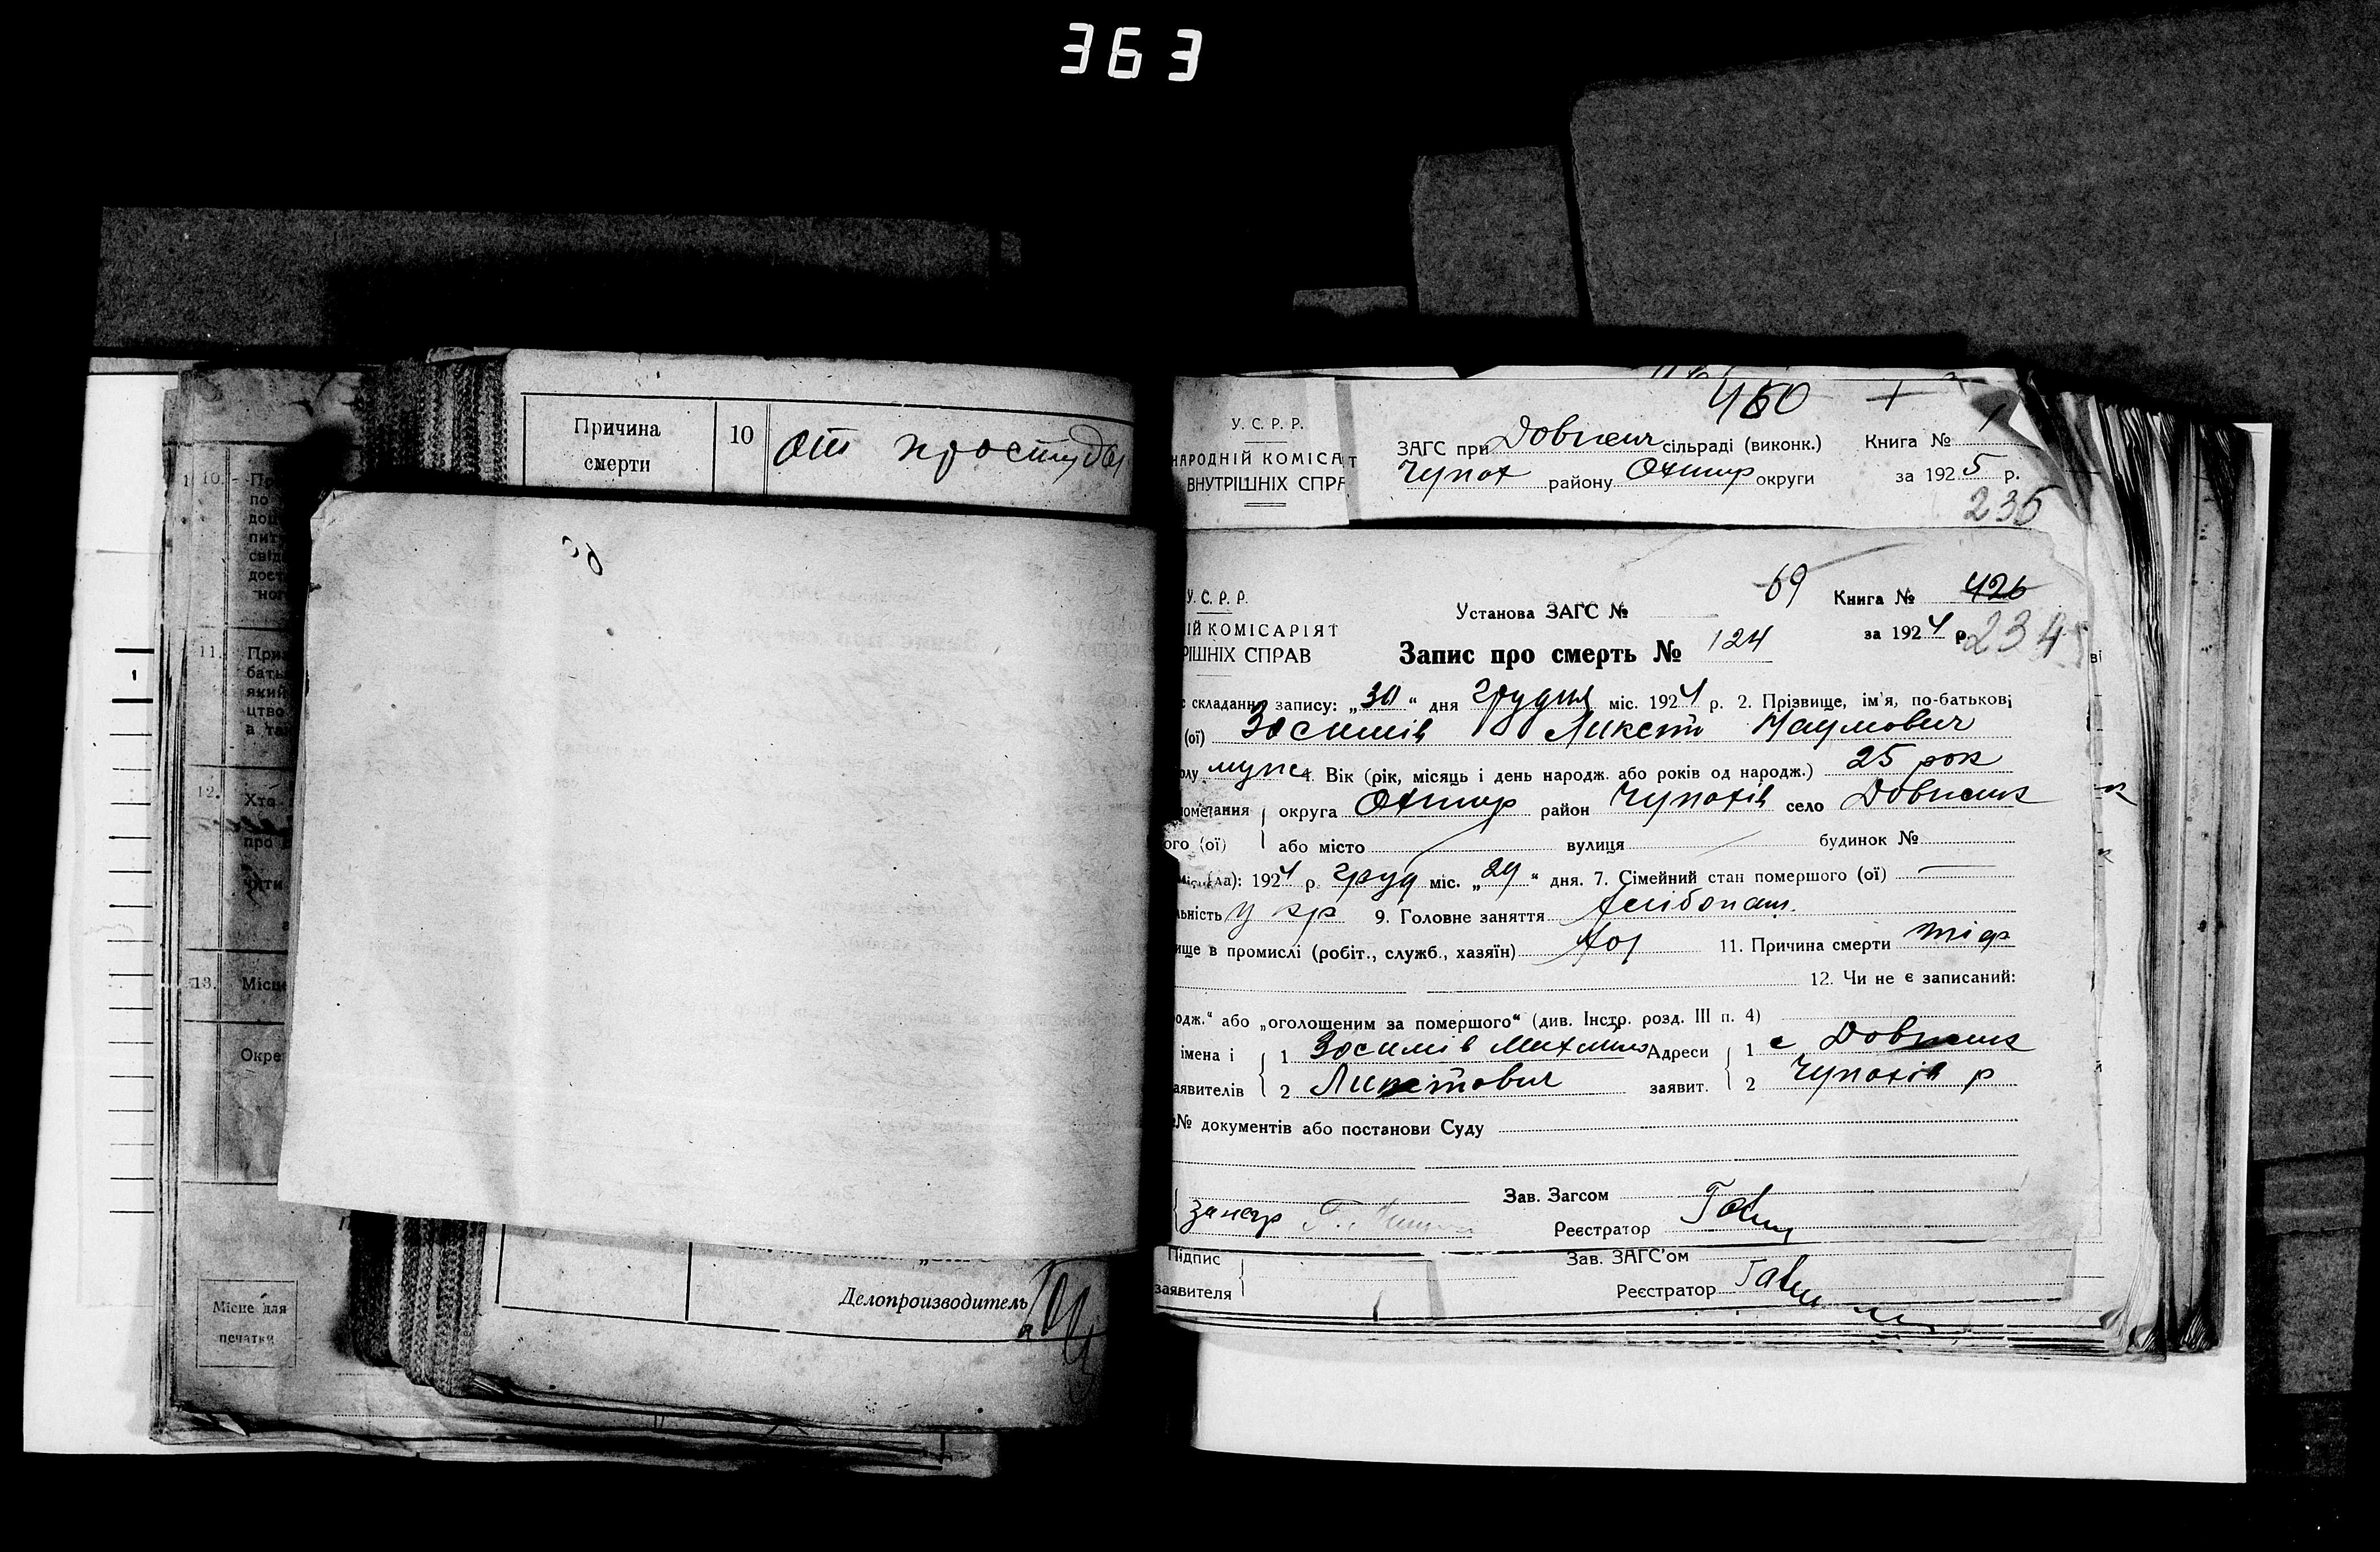 363
10.
11.
12.
13.
Місце для
печатки
Причина
смерти
10
от простуды
Делопроизводитель
460
У. С. Р. Р.
НАРОДНІЙ КОМІСАТ
ВНУТРІШНІХ СПР
ЗАГС при Довжен сільраді (виконк.) Книга № 1
Чупах району Охтир округи за 1925 р.
235
У. С. Р. Р.
ІЙ КОМІСАРІЯТ
РІШНІХ СПРАВ
Установа ЗАГС № 69 Книга № 426
Запис про смерть № 124 за 1924 р. 234
складання запису: „30“ дня грудня міс. 1924 р. 2. Прізвище, ім'я, по-батькові
(ої) Зосимів Микет Наумович
олу муж 4. Вік (рік, місяць і день народж. або років од народж.) 25 рок
округа Охтир район Чупахів село Довжик
ого (ої) або місто вулиця будинок №
(ла): 1924 р. груд міс. „29“ дня. 7. Сімейний стан помершого (ої)
льність укр 9. Головне заняття хлібопаш.
ище в промислі (робіт., служб., хазяїн) хоз 11. Причина смерти тіф
12. Чи не є записаний:
одж.“ або „оголошеним за помершого“ (див. Інстр. розд. III п. 4)
імена і 1 Зосимів Адреси 1 с Довжик
аявителів 2 заявит. 2 Чупахів р
№ документів або постанови Суду
Зав. Загсом
Реєстратор
Підпис
заявителя
Зав. ЗАГС'ом
Реєстратор